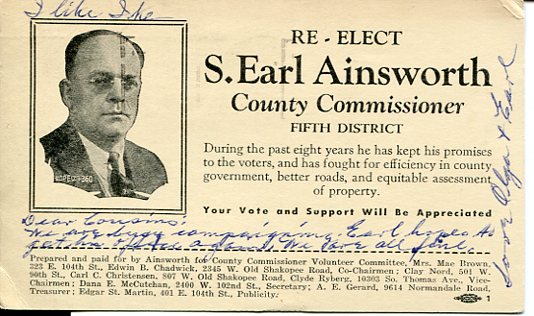 I like Ike
RE - ELECT
S. Earl Ainsworth
County Commissioner
FIFTH DISTRICT
During the past eight years he has kept his promises
to the voters, and has fought for efficiency in county
government, better roads, and equitable assessment
of property.
Your Vote and Support Will Be Appreciated
Dear Cousins:
We are busy campaigning. Earl hopes to
get in office again. We are all fine.
Love Olga & Earl
Prepared and paid for by Ainsworth for County Commissioner Volunteer Committee, Mrs. Mae Brown,
323 E. 104th St., Edwin B. Chadwick, 2345 W. Old Shakopee Road, Co-Chairmen; Clay Nord, 501 W.
90th St., Carl C. Christensen, 807 W. Old Shakopee Road, Clyde Ryberg, 10303 So. Thomas Ave., Vice-
Chairmen; Dana E. McCutchan, 2400 W. 102nd St., Secretary; A. E. Gerard, 9614 Normandale Road,
Treasurer; Edgar St. Martin, 401 E. 104th St., Publicity.
1